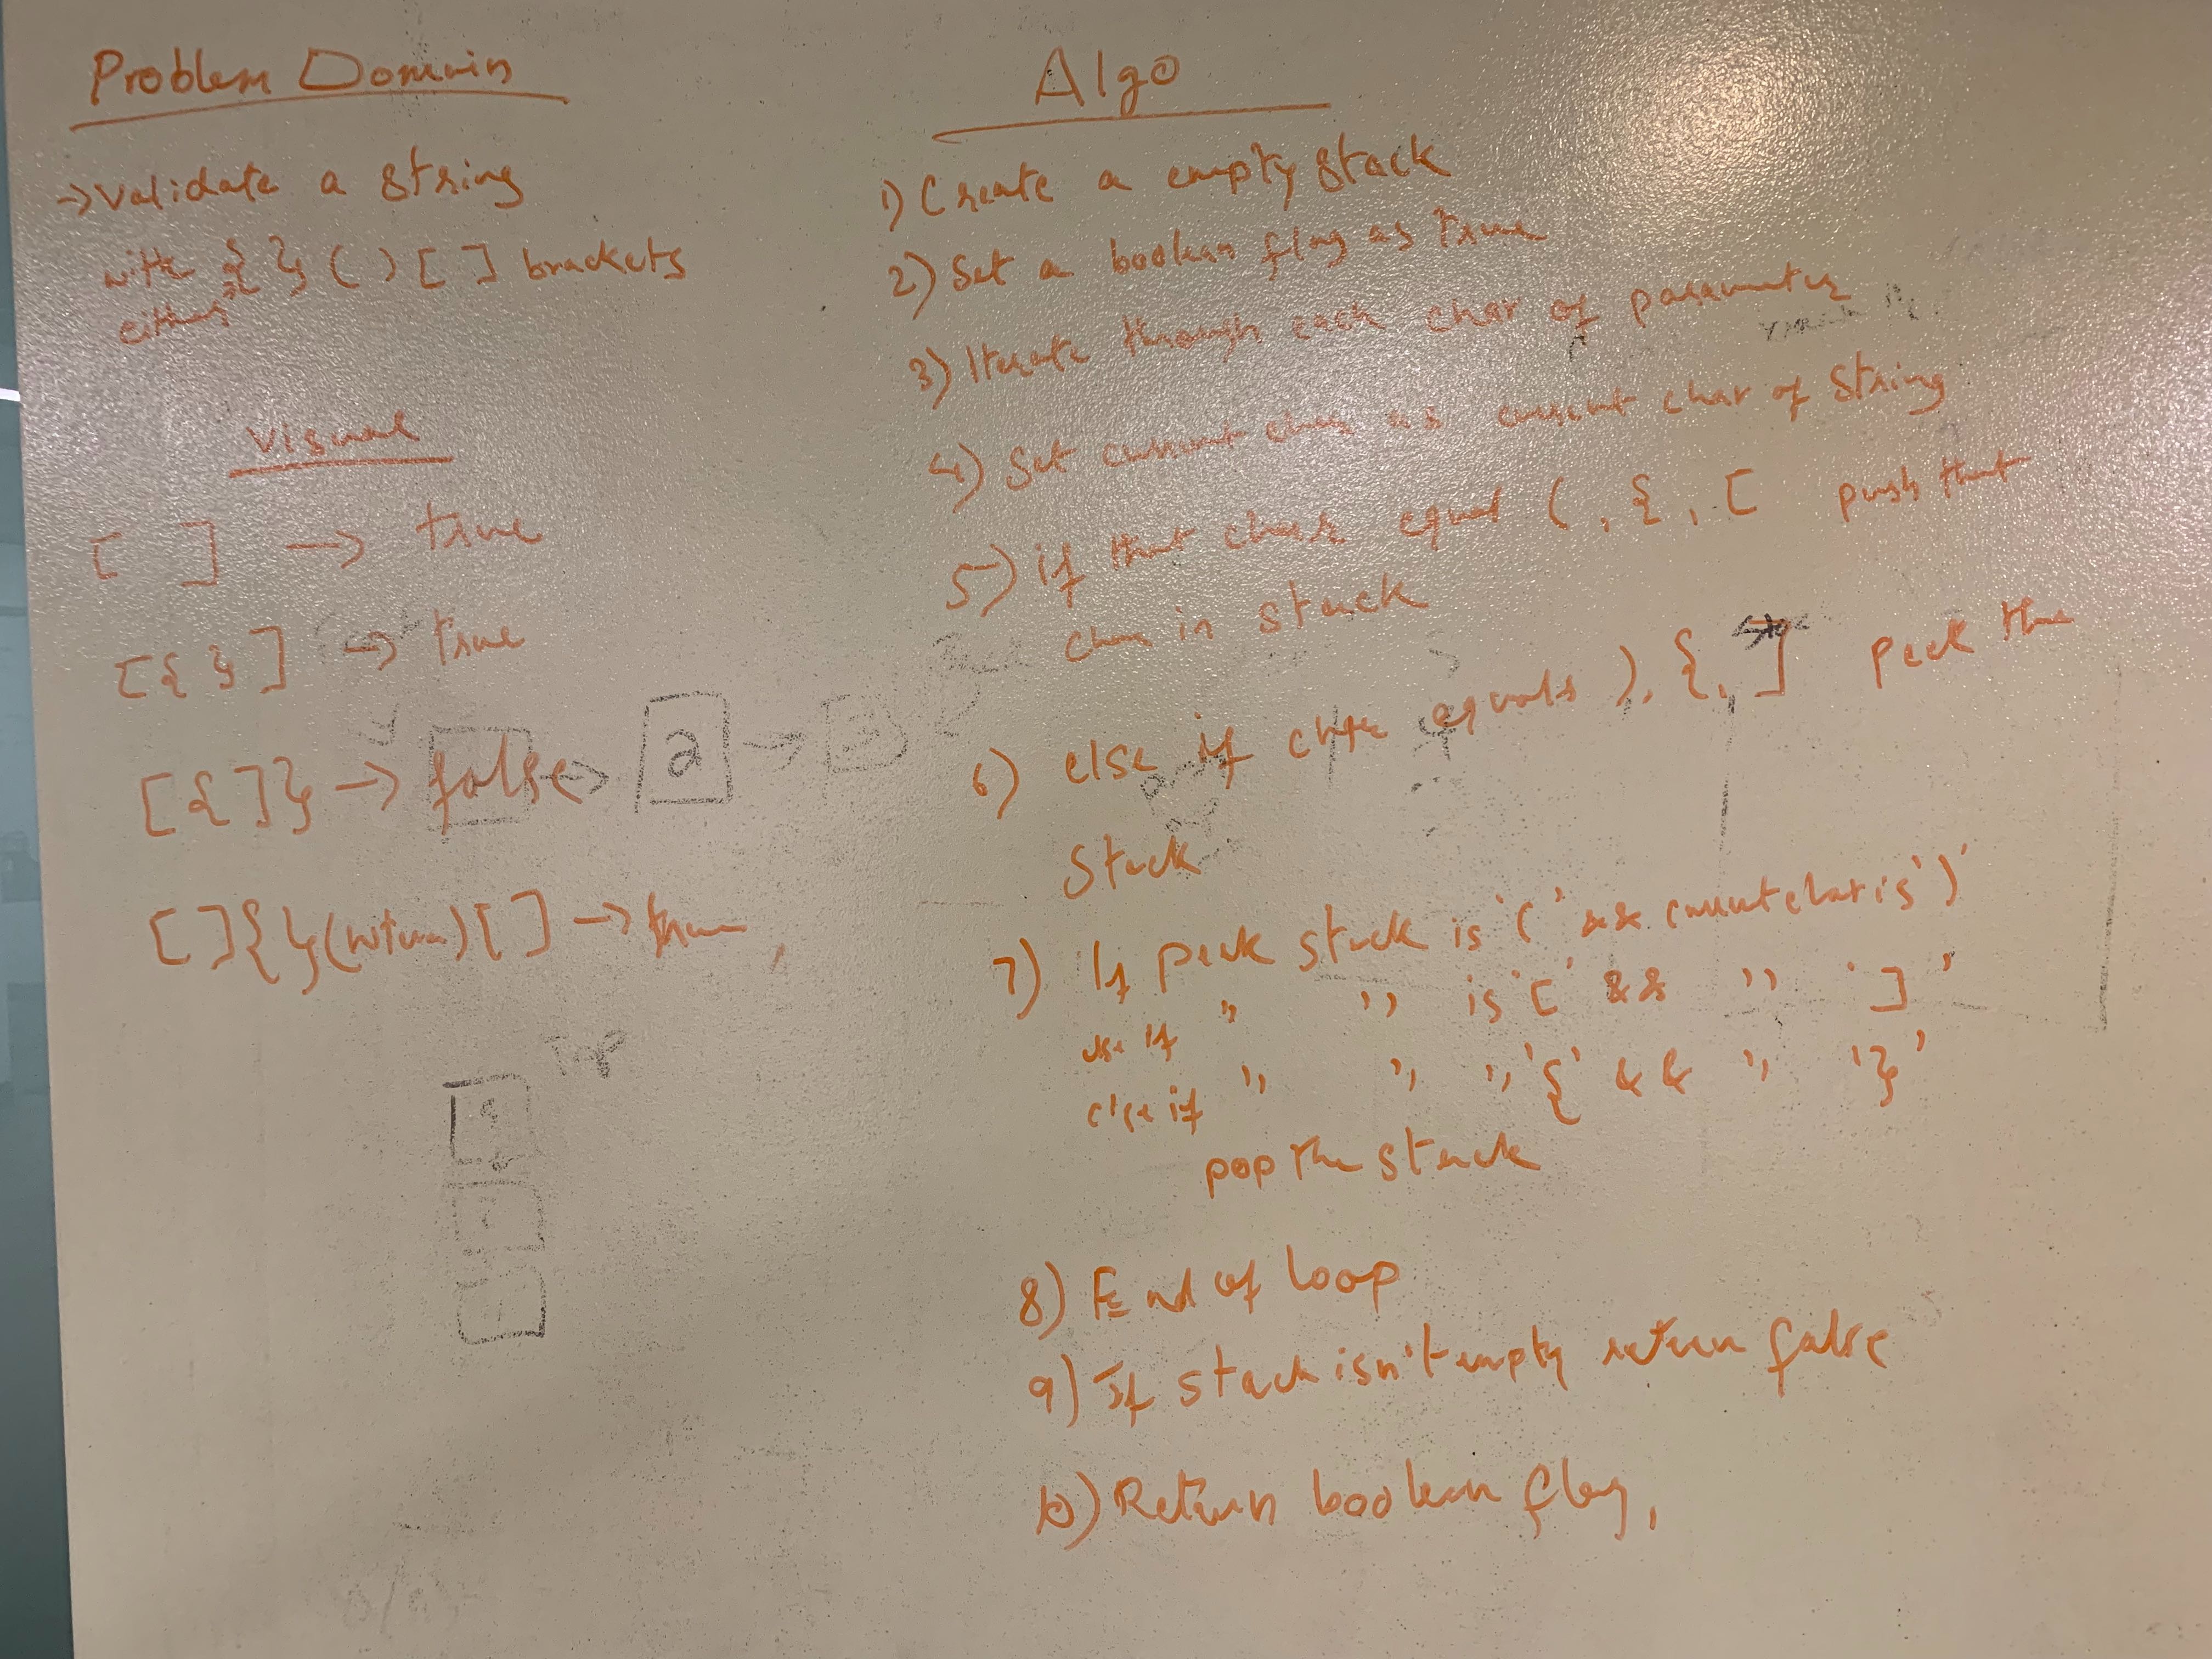 Problem Domain
→ Validate a string
with { } ( ) [ ] brackets
either
Visual
[ ] → true
[{}] → true
[{]} → false
a
[]{}( )[] → true
Top
Algo
1) Create a empty stack
2) Set a boolean flag as true
3) Iterate through each char of parameter
4) Set current char as current char of string
5) if that char equal (, {, [ push that
char in stack
6) else if char equals ), {, ] peek the
Stack
7) If peek stack is '(' && current char is ')'
else if " " is '[' && " ']'
else if " " " '{' && " '}'
pop the stack
8) End of loop
9) If stack isn't empty return false
10) Return boolean flag,